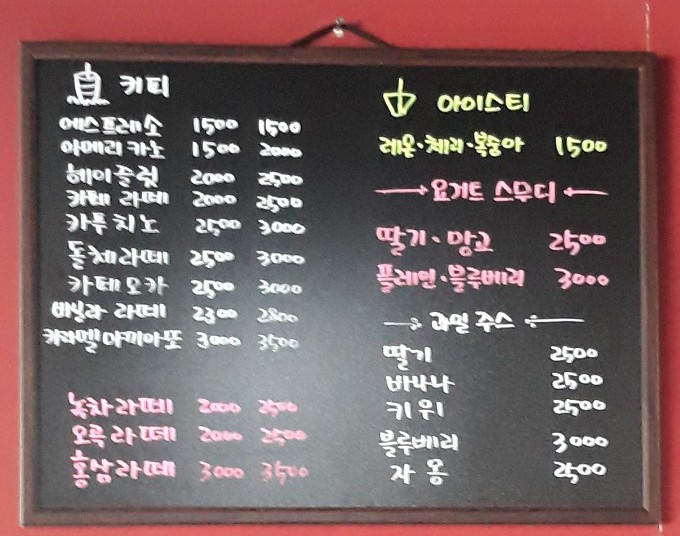 커피
에스프레소 1500 1500
아메리카노 1500 2000
헤이즐럿 2000 2500
카페 라떼 2000 2500
카푸치노 2500 3000
돌체라떼 2500 3000
카페모카 2500 3000
바닐라 라떼 2300 2800
카라멜마끼아또 3000 3500
녹차라떼 2000 2500
오곡라떼 2000 2500
홍삼라떼 3000 3500
아이스티
레몬·체리·복숭아 1500
요거트 스무디
딸기·망고 2500
플레인·블루베리 3000
과일 주스
딸기 2500
바나나 2500
키위 2500
블루베리 3000
자몽 2500